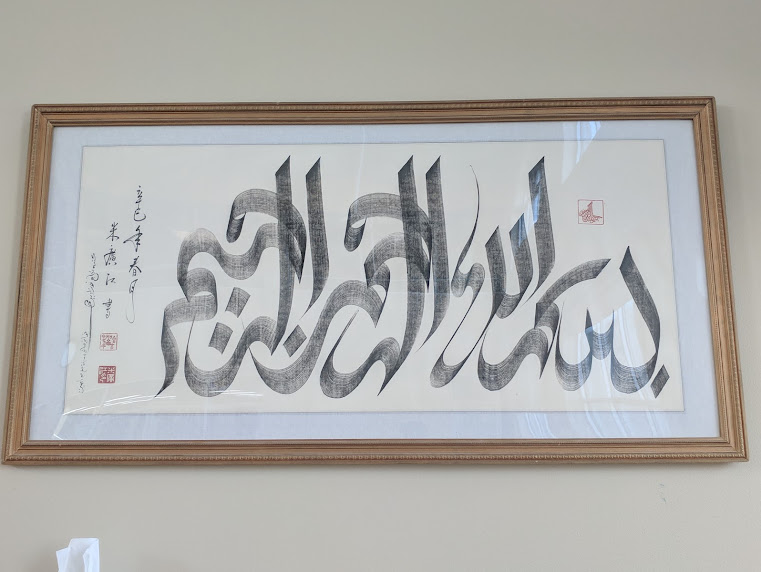 بسم الله الرحمن الرحيم
辛巳年春月
米广江书